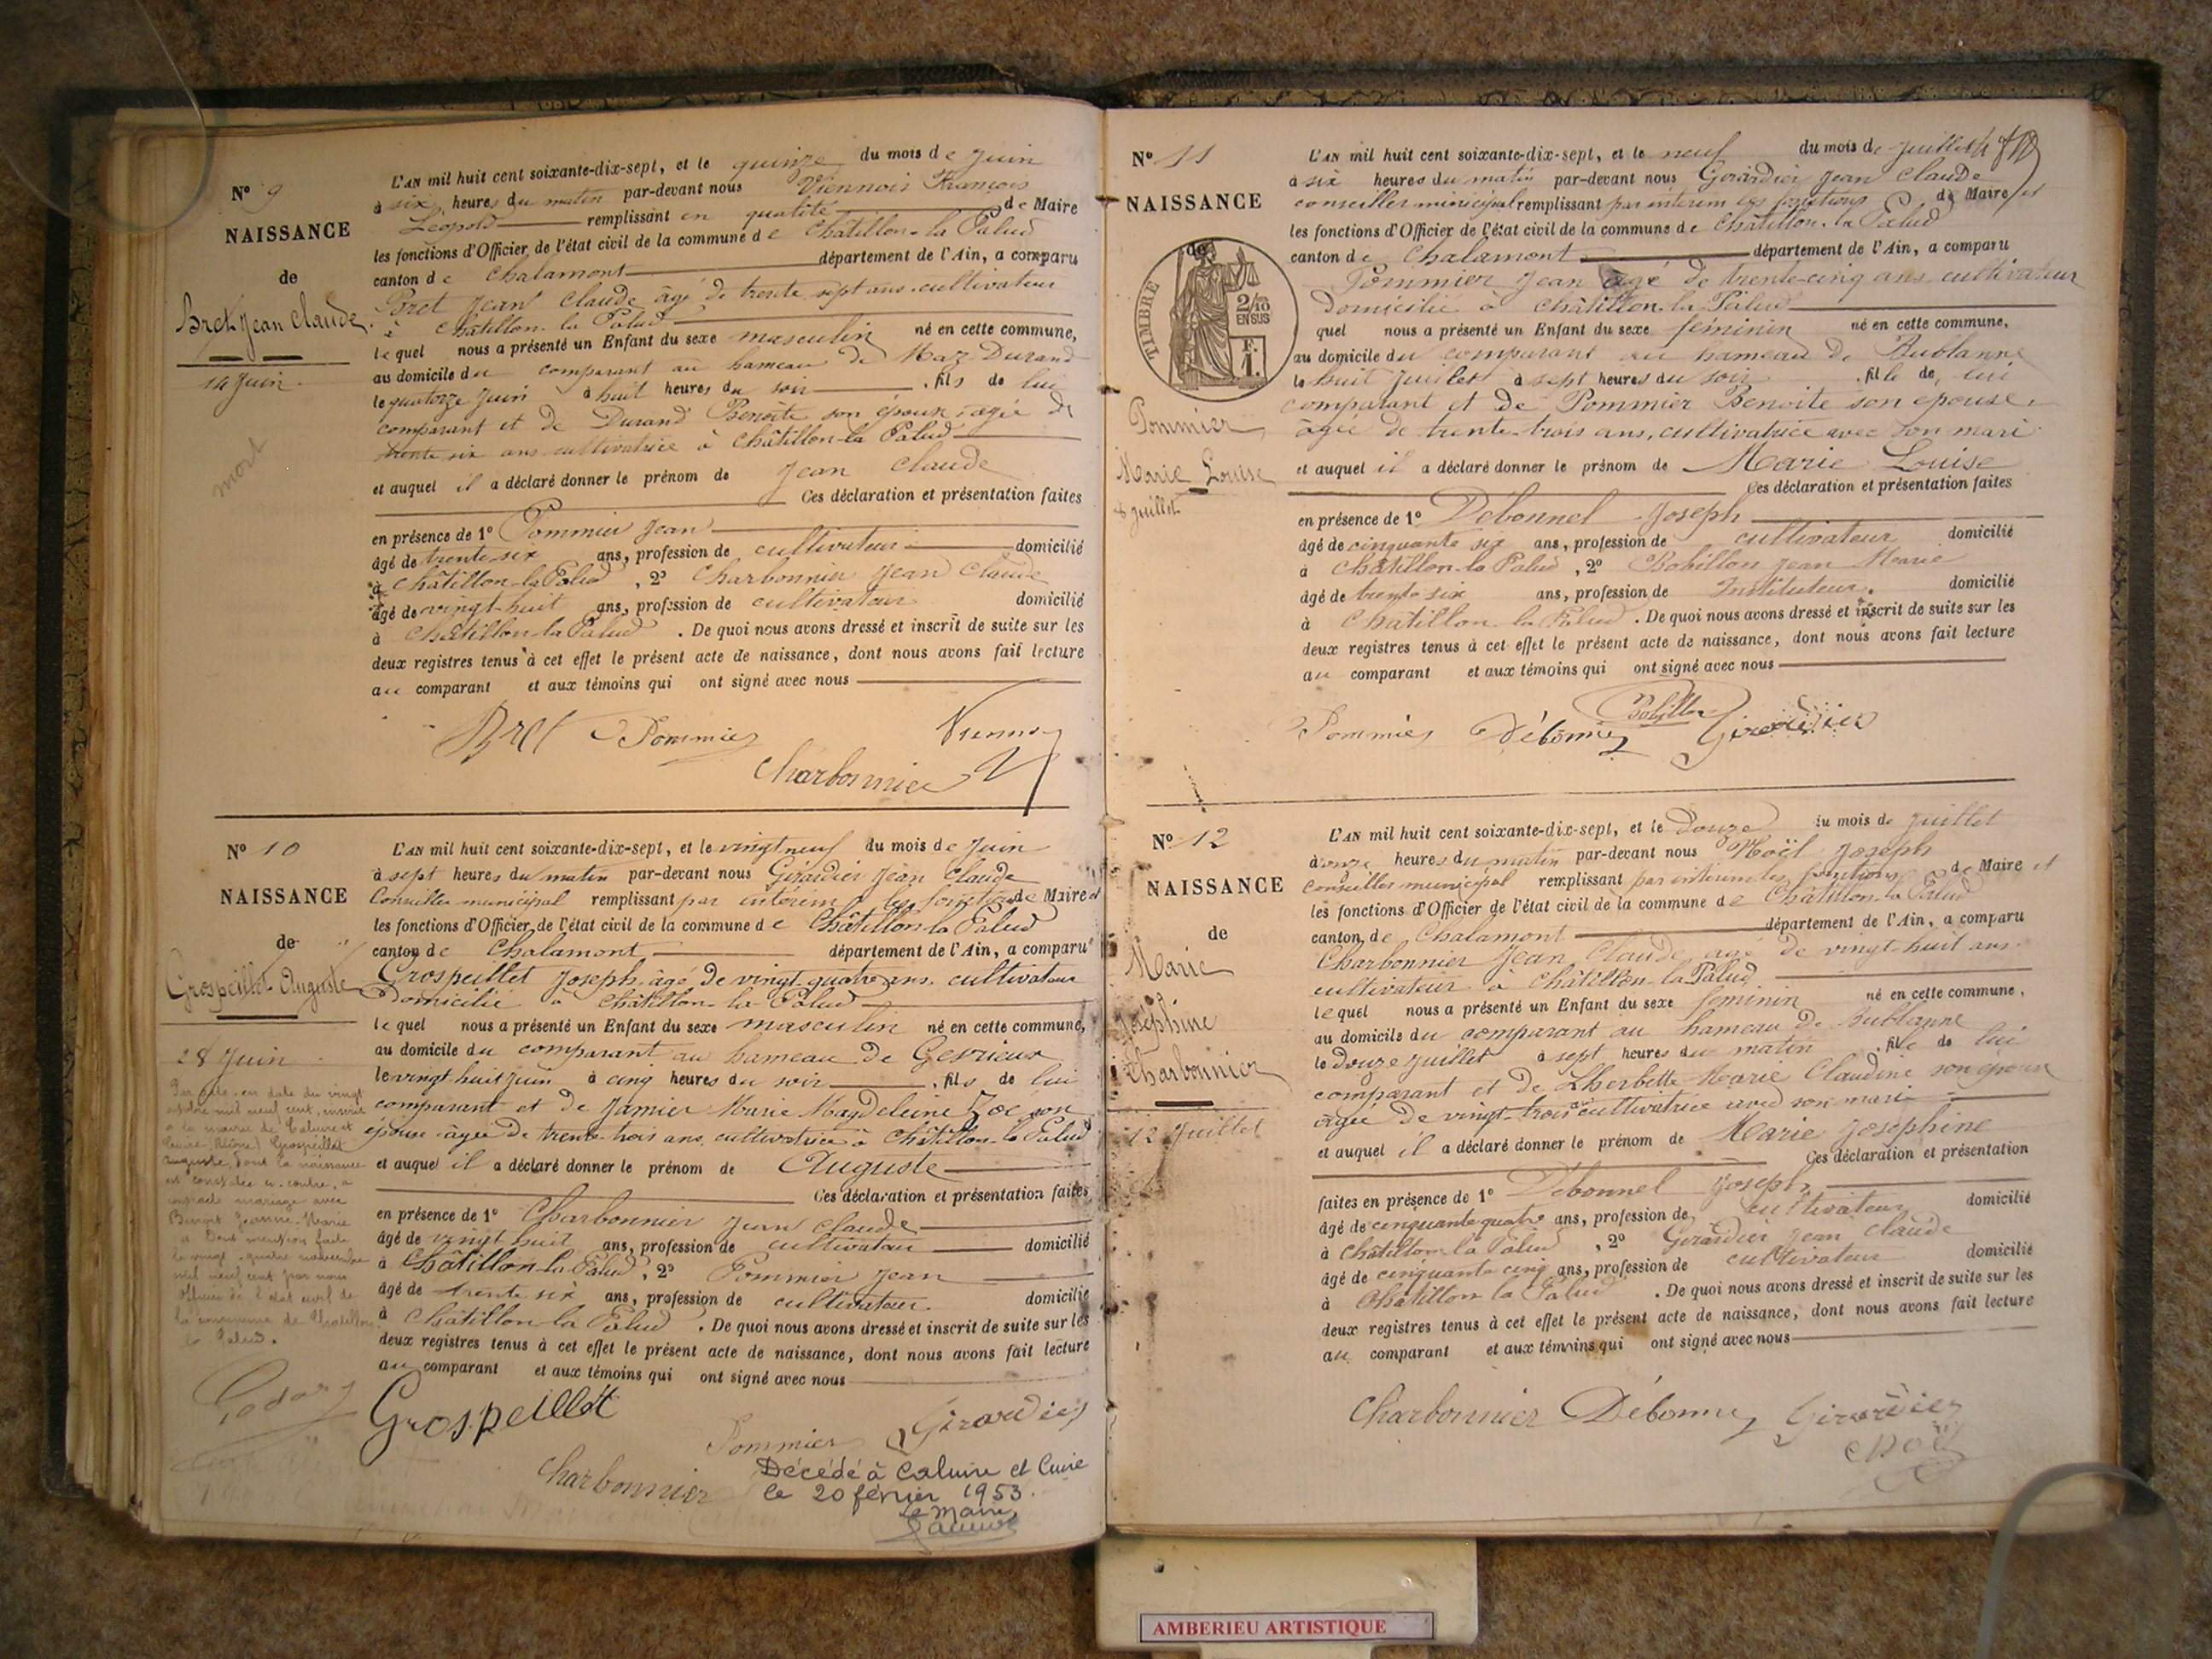 N° 9
NAISSANCE
de
Bret Jean Claude.
14 Juin.
mort
L'AN mil huit cent soixante-dix-sept, et le quinze du mois de Juin
à six heures du matin par-devant nous Viennois François
Léopold remplissant en qualité de Maire
les fonctions d'Officier de l'état civil de la commune de Châtillon-la Palud
canton de Chalamont département de l'Ain, a comparu
Bret Jean Claude âgé de trente sept ans cultivateur
à Châtillon-la Palud
lequel nous a présenté un Enfant du sexe masculin né en cette commune,
au domicile du comparant au hameau de Maz Durand
le quatorze juin à huit heures du soir, fils de lui
comparant et de Durand Benoite son épouse, âgée de
trente six ans cultivatrice à Châtillon-la Palud
et auquel il a déclaré donner le prénom de Jean Claude
Ces déclaration et présentation faites
en présence de 1° Pommier Jean
âgé de trente-six ans, profession de cultivateur domicilié
à Châtillon-la Palud, 2° Charbonnier Jean Claude
âgé de vingt-huit ans, profession de cultivateur domicilié
à Châtillon-la Palud. De quoi nous avons dressé et inscrit de suite sur les
deux registres tenus à cet effet le présent acte de naissance, dont nous avons fait lecture
au comparant et aux témoins qui ont signé avec nous
Bret Pommier
Charbonnier
N° 10
NAISSANCE
de
Grospeillet Auguste
28 Juin
Par acte en date du vingt
octobre mil neuf cent, inscrit
à la mairie de Caluire et
Cuire (Rhône) Grospeillet
Auguste, dont la naissance
est constatée ci-contre, a
contracté mariage avec
Benoit Jeanne-Marie
Dont mention faite
le vingt-quatre novembre
mil neuf cent par nous
Officier de l'état civil de
la commune de Châtillon
la Palud.
L'AN mil huit cent soixante-dix-sept, et le vingt neuf du mois de Juin
à sept heures du matin par-devant nous Girardier Jean Claude
Conseiller municipal remplissant par intérim les fonctions de Maire et
les fonctions d'Officier de l'état civil de la commune de Châtillon-la Palud
canton de Chalamont département de l'Ain, a comparu
Grospeillet Joseph âgé de vingt-quatre ans, cultivateur
Domicilié à Châtillon-la Palud
lequel nous a présenté un Enfant du sexe masculin né en cette commune,
au domicile du comparant au hameau de Gevrieux
le vingt huit juin à cinq heures du soir, fils de lui
comparant et de Jamier Marie Magdeleine Zoé son
épouse âgée de trente-trois ans, cultivatrice à Châtillon-la Palud
et auquel il a déclaré donner le prénom de Auguste
Ces déclaration et présentation faites
en présence de 1° Charbonnier Jean Claude
âgé de vingt huit ans, profession de cultivateur domicilié
à Châtillon-la Palud, 2° Pommier Jean
âgé de trente six ans, profession de cultivateur domicilié
à Châtillon-la Palud. De quoi nous avons dressé et inscrit de suite sur les
deux registres tenus à cet effet le présent acte de naissance, dont nous avons fait lecture
au comparant et aux témoins qui ont signé avec nous
Grospeillet
Pommier Girardier
Charbonnier
Décédé à Caluire et Cuire
le 20 février 1953.
Le Maire
N° 11
NAISSANCE
de
TIMBRE
2/10
EN SUS
F.
1.
Pommier
Marie Louise
8 juillet
L'AN mil huit cent soixante-dix-sept, et le neuf du mois de Juillet
à six heures du matin par-devant nous Girardier Jean Claude
conseiller municipal remplissant par intérim les fonctions de Maire et
les fonctions d'Officier de l'état civil de la commune de Châtillon-la Palud
canton de Chalamont département de l'Ain, a comparu
Pommier Jean âgé de trente-cinq ans cultivateur
Domicilié à Châtillon-la Palud
quel nous a présenté un Enfant du sexe féminin né en cette commune,
au domicile du comparant au hameau de Bublanne
le huit juillet à sept heures du soir, fille de lui
comparant et de Pommier Benoite son épouse,
âgée de trente-trois ans, cultivatrice avec son mari
et auquel il a déclaré donner le prénom de Marie Louise
Ces déclaration et présentation faites
en présence de 1° Débonnel Joseph
âgé de cinquante six ans, profession de cultivateur domicilié
à Châtillon-la Palud, 2° Bobillon Jean Marie
âgé de trente six ans, profession de Instituteur. domicilié
à Châtillon-la Palud. De quoi nous avons dressé et inscrit de suite sur les
deux registres tenus à cet effet le présent acte de naissance, dont nous avons fait lecture
au comparant et aux témoins qui ont signé avec nous
Bobillon
Pommier Débonnel Girardier
N° 12
NAISSANCE
de
Marie
Joséphine
Charbonnier
12 Juillet
L'AN mil huit cent soixante-dix-sept, et le douze du mois de Juillet
à onze heures du matin par-devant nous Noël Joseph
conseiller municipal remplissant par intérim les fonctions de Maire et
les fonctions d'Officier de l'état civil de la commune de Châtillon-la Palud
canton de Chalamont département de l'Ain, a comparu
Charbonnier Jean Claude âgé de vingt-huit ans
cultivateur à Châtillon-la-Palud
lequel nous a présenté un Enfant du sexe féminin né en cette commune,
au domicile du comparant au hameau de Bublanne
le Douze juillet à sept heures du matin, fille de lui
comparant et de Lherbette Marie Claudine son épouse
âgée de vingt-trois ans cultivatrice avec son mari
et auquel il a déclaré donner le prénom de Marie Joséphine
Ces déclaration et présentation
faites en présence de 1° Débonnel Joseph,
âgé de cinquante quatre ans, profession de cultivateur domicilié
à Châtillon-la Palud, 2° Girardier Jean Claude
âgé de cinquante cinq ans, profession de cultivateur domicilié
à Châtillon la Palud. De quoi nous avons dressé et inscrit de suite sur les
deux registres tenus à cet effet le présent acte de naissance, dont nous avons fait lecture
au comparant et aux témoins qui ont signé avec nous
Charbonnier Débonnel Girardier
Noël
AMBERIEU ARTISTIQUE